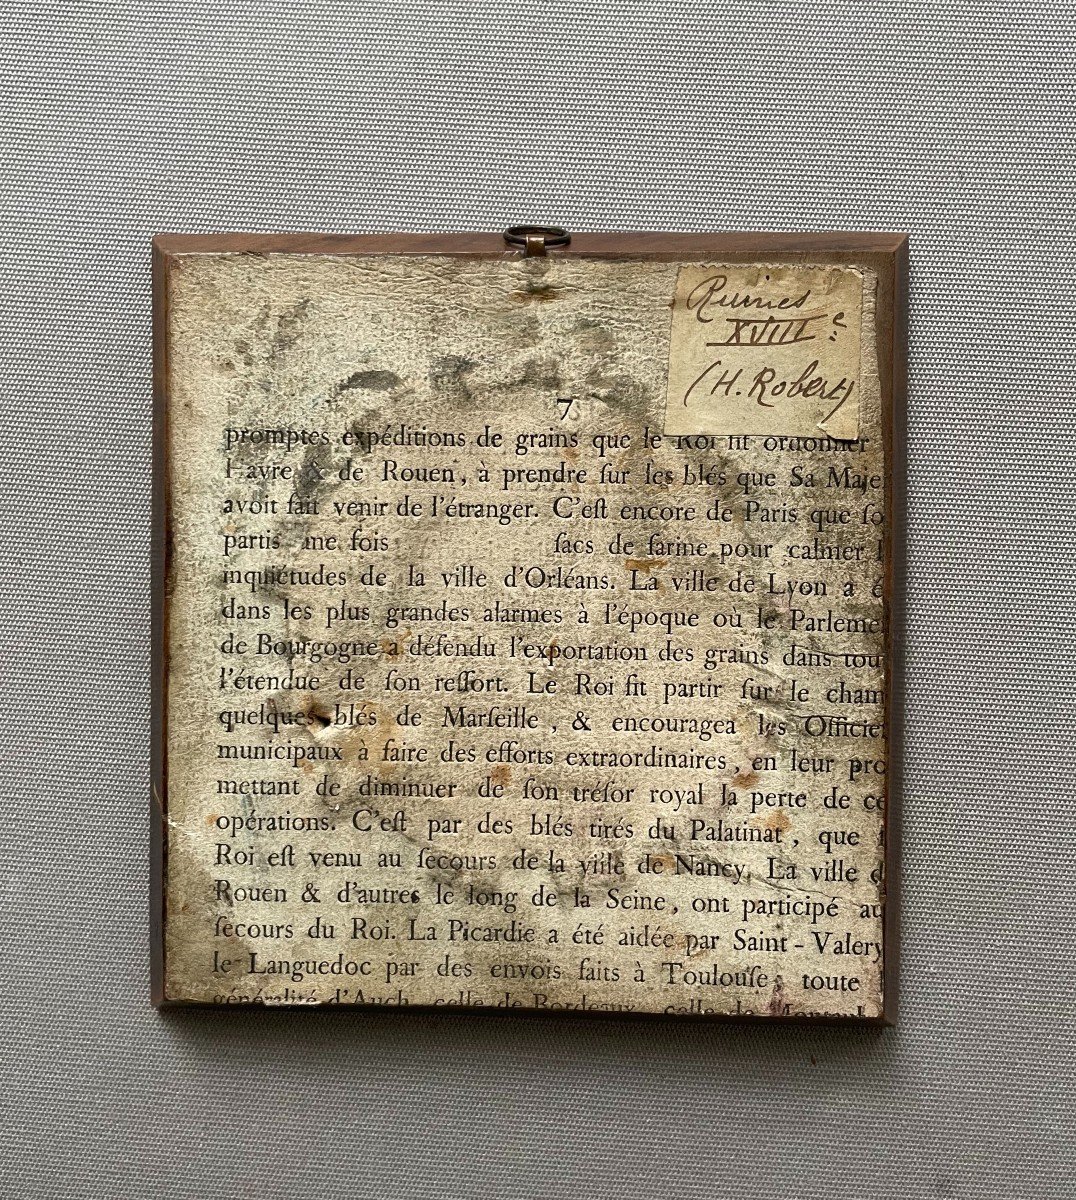 Ruines
XVIIIe:
(H. Robert)
7
promptes expéditions de grains que le Roi fit ordonner
Havre & de Rouen, à prendre ſur les blés que Sa Maje
avoit fait venir de l'étranger. C'eſt encore de Paris que ſo
partis me fois ſacs de farine pour calmer l
inquiétudes de la ville d'Orléans. La ville de Lyon a é
dans les plus grandes alarmes à l'époque où le Parleme
de Bourgogne a défendu l'exportation des grains dans tou
l'étendue de ſon reſſort. Le Roi fit partir ſur le cham
quelques blés de Marſeille, & encouragea les Officie
municipaux à faire des efforts extraordinaires, en leur pro
mettant de diminuer de ſon tréſor royal la perte de ce
opérations. C'eſt par des blés tirés du Palatinat, que l
Roi eſt venu au ſecours de la ville de Nancy. La ville d
Rouen & d'autres le long de la Seine, ont participé au
ſecours du Roi. La Picardie a été aidée par Saint-Valery
le Languedoc par des envois faits à Toulouſe; toute
généralité d'Auch, celle de Bordeaux, celle de